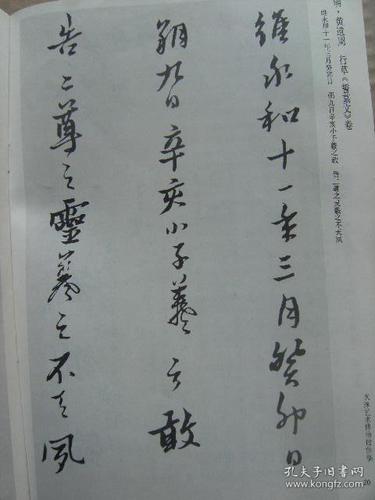 明·黄道周 行草《誓墓文》卷
维永和十一年三月癸卯日 朔九日辛亥小子羲之敢 告二尊之灵羲之不天夙
維永和十一年三月癸卯日
朔九日辛亥小子羲之敢
告二尊之靈羲之不天夙
天津艺术博物馆
20
孔夫子旧书网